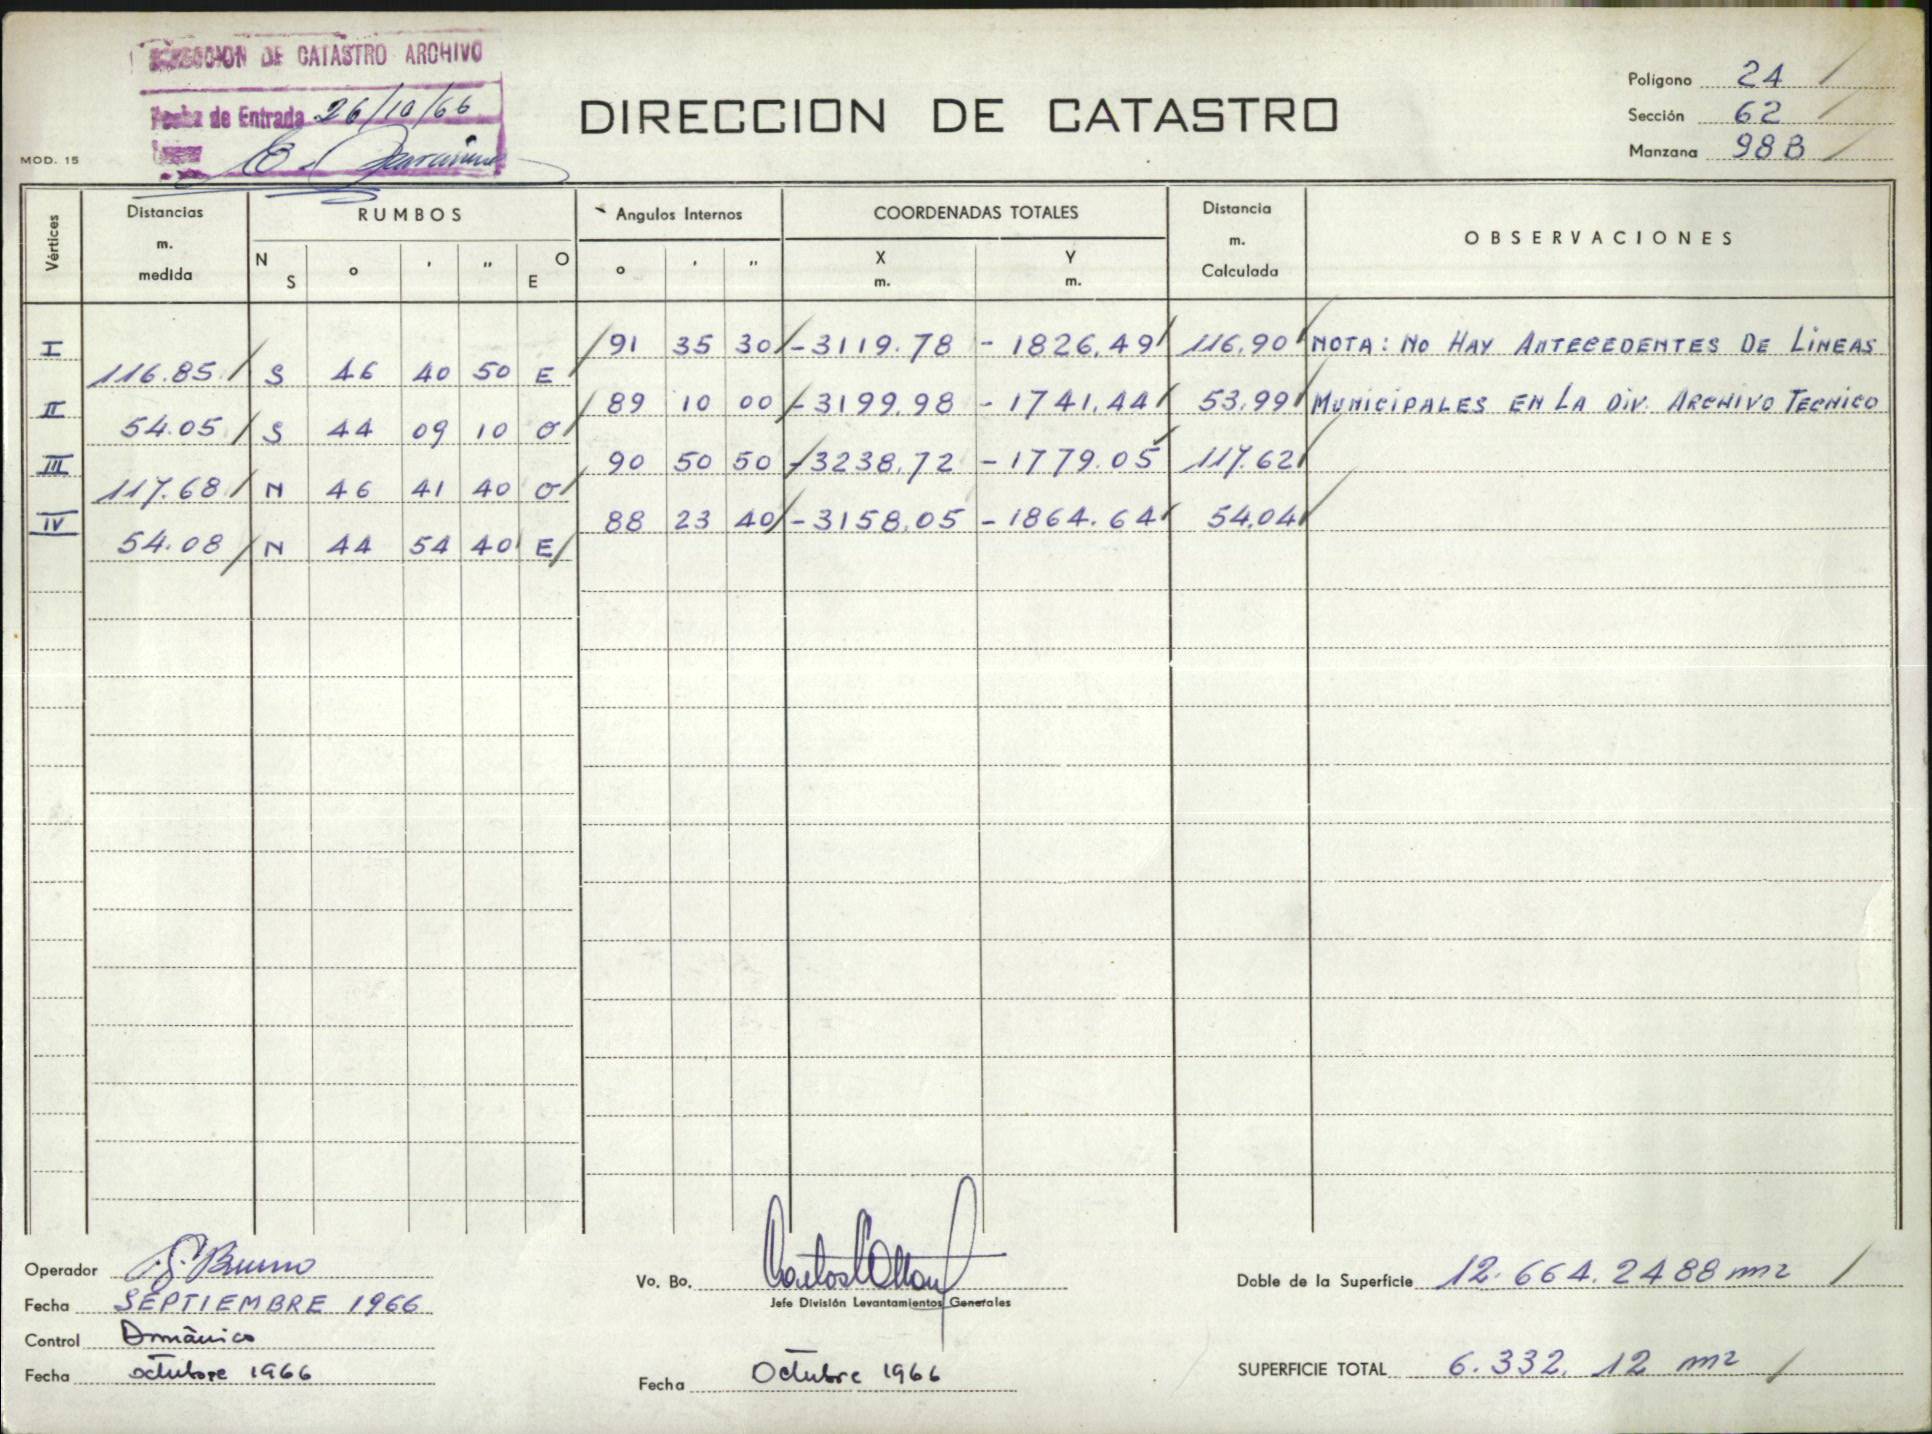 DIRECCION DE CATASTRO ARCHIVO
Fecha de Entrada 26/10/66
MOD. 15
DIRECCION DE CATASTRO
Polígono 24
Sección 62
Manzana 98B
Vértices
Distancias m. medida
RUMBOS
N S ° ' " O E
Angulos Internos
° ' "
COORDENADAS TOTALES
X m. Y m.
Distancia m. Calculada
OBSERVACIONES
I 91 35 30 -3119.78 -1826.49 116.90 NOTA: NO HAY ANTECEDENTES DE LINEAS
116.85 S 46 40 50 E
II 89 10 00 -3199.98 -1741.44 53.99 MUNICIPALES EN LA DIV. ARCHIVO TECNICO
54.05 S 44 09 10 O
III 90 50 50 -3238.72 -1779.05 117.62
117.68 N 46 41 40 O
IV 88 23 40 -3158.05 -1864.64 54.04
54.08 N 44 54 40 E
Operador Bruno
Fecha SEPTIEMBRE 1966
Control Domânico
Fecha octubre 1966
Vo. Bo.
Jefe División Levantamientos Generales
Fecha Octubre 1966
Doble de la Superficie 12.664.2488 m2
SUPERFICIE TOTAL 6.332.12 m2